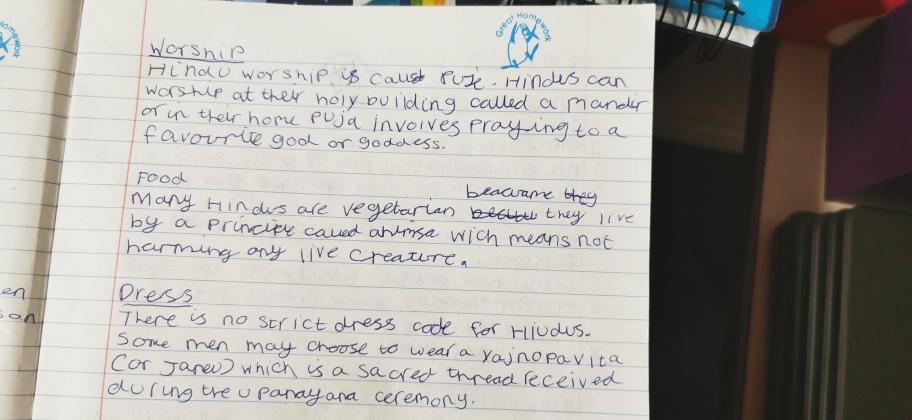 Great Homework
Worship
Hindu worship is called Puje. Hindus can
worship at their holy building called a Mandir
or in their home Puja involves Praying to a
favourite god or goddess.
Food
beacuame they
Many Hindus are vegetarian they live
by a Principe called ahimsa wich means not
harming any live creature.
Dress
There is no strict dress code for Hindus.
Some men may choose to wear a yajnopavita
(or Janeu) which is a sacred thread received
during the upanayana ceremony.
en
son